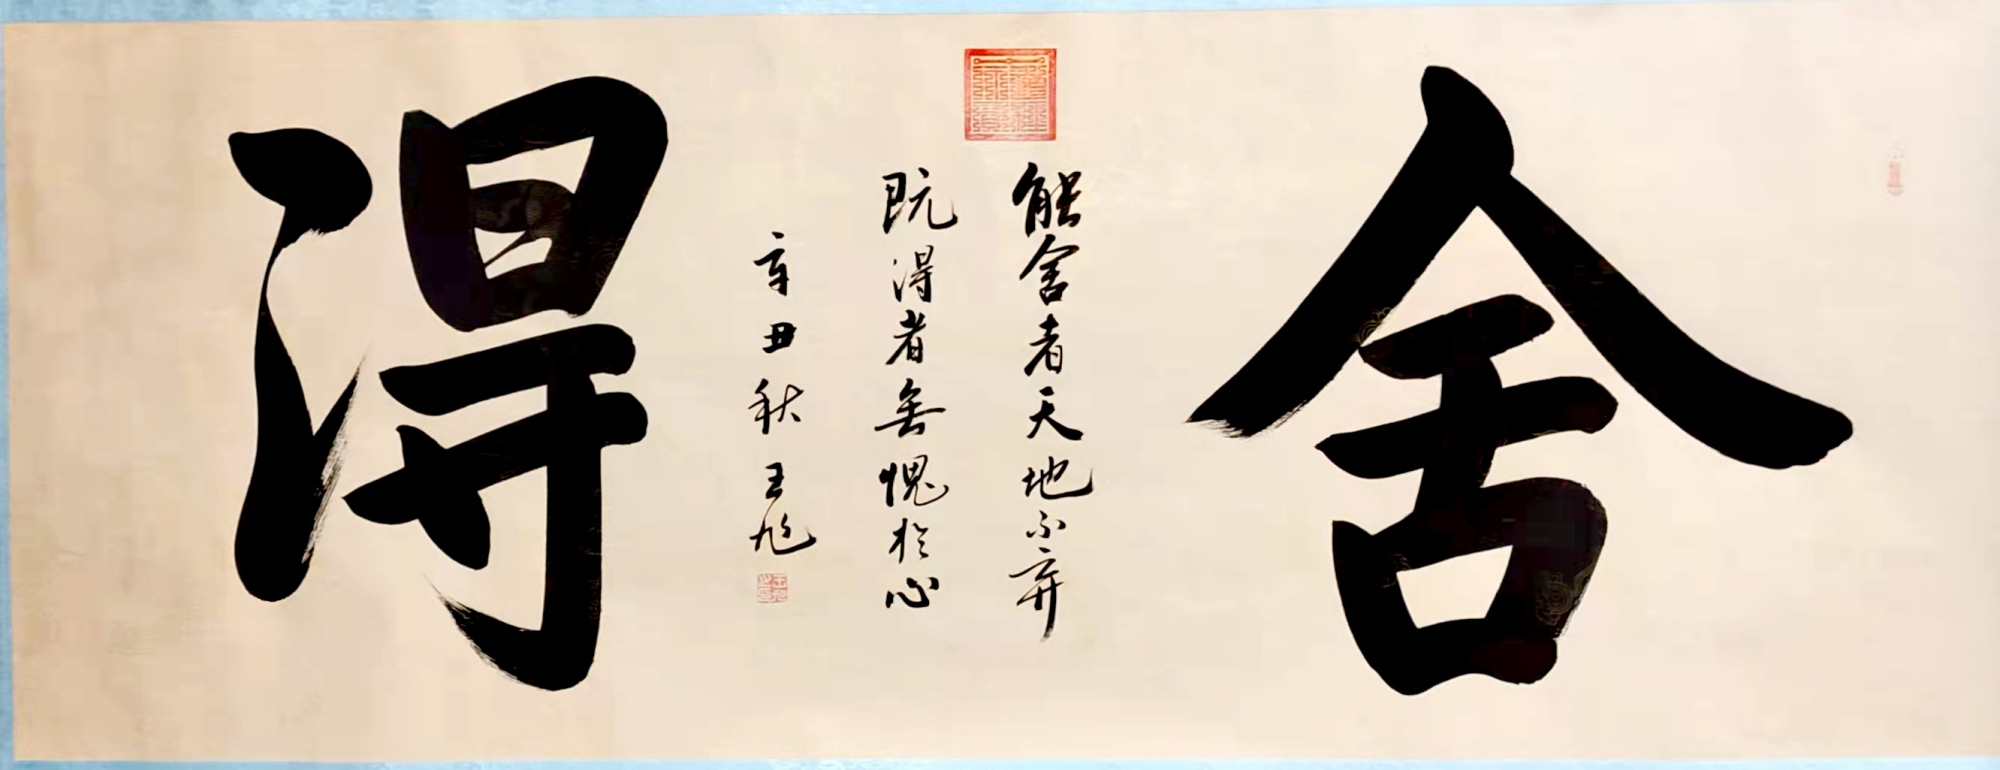 舍
能舍者天地不弃
既得者無愧於心
辛丑秋 王旭
得